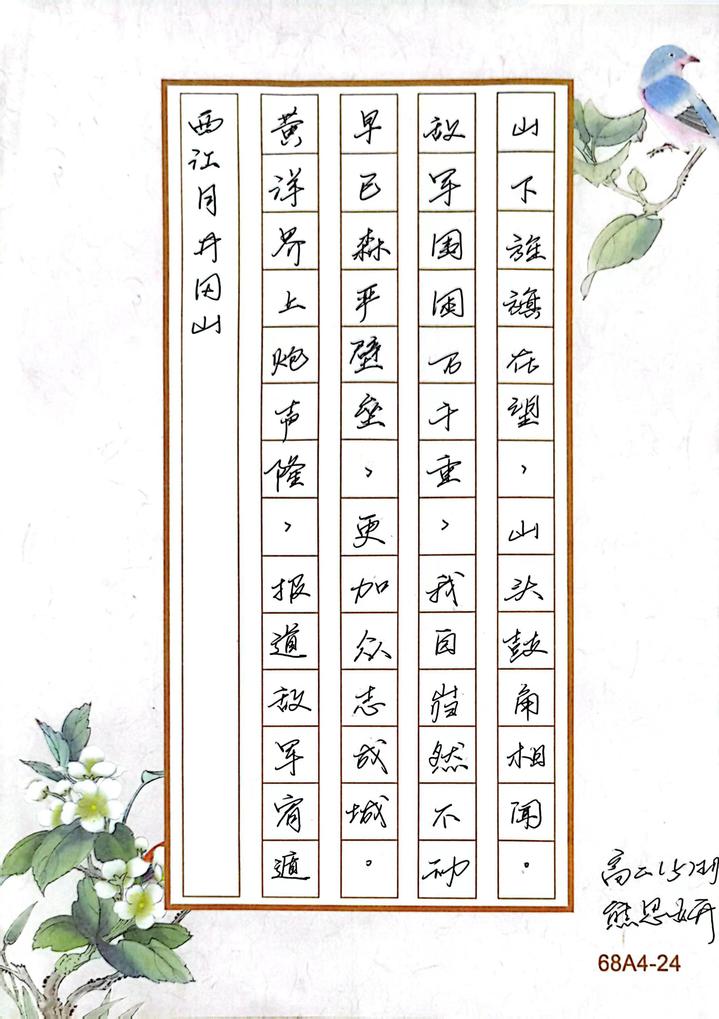 山下旌旗在望，山头鼓角相闻。
敌军围困万千重，我自岿然不动
早已森严壁垒，更加众志成城。
黄洋界上炮声隆，报道敌军宵遁
西江月井冈山
高二(5)班
熊思妍
68A4-24